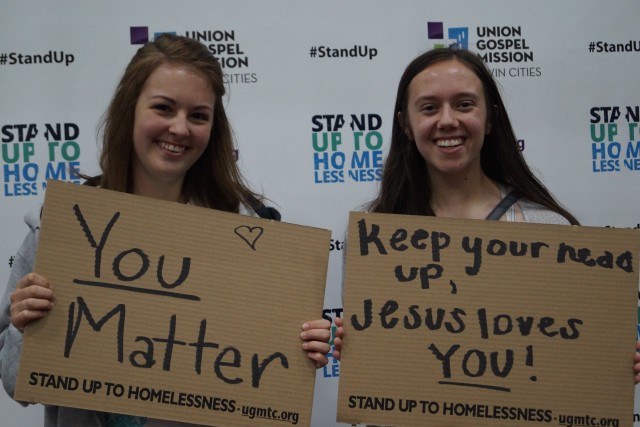 #StandUp
UNION
GOSPEL
MISSION
CITIES
#StandUp
UNION
GOSPEL
MISSION
WIN CITIES
#StandUp
STAND
UP TO
HOME
LESSNESS
STAND
UP TO
HOME
LESSNESS
STAND
UP TO
HOME
LESSNESS
You
Matter
STAND UP TO HOMELESSNESS - ugmtc.org
Keep your head
up,
Jesus loves
YOU!
STAND UP TO HOMELESSNESS - ugmtc.org